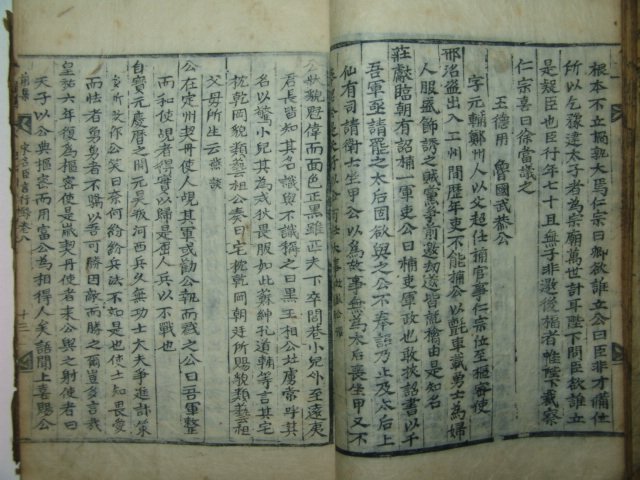 根本不立禍孰大焉仁宗曰卿欲誰立公曰臣非才備位
所以乞豫建太子者為宗廟萬世計耳陛下問臣欲誰立
是疑臣也臣行年七十且無子非邀後福者惟陛下裁察
仁宗喜曰徐當議之
王德用 魯國武恭公
字元輔鄭州人以父超仕補官事仁宗位至樞密使
邢洺盜出入二州間歷年吏不能捕公以氈車載勇士為婦
人服盛飾誘之賊黨爭前邀劫遂皆就擒由是知名
莊獻臨朝有詔補一軍吏公曰補吏軍政也敢挾詔書以干
吾軍亟請罷之太后固欲與之公不奉詔乃止及太后上
仙有司請衛士坐甲公以為故事無為太后喪坐甲又不
公狀貌魁偉而面色正黑雖匹夫下卒閭巷小兒外至遠夷
君長皆知其名識與不識稱之曰黑王相公北虜常呼其
名以驚小兒其為戎狄畏服如此蘇紳孔道輔等言其宅
枕乾岡貌類藝祖公奏曰宅枕乾岡朝廷所賜貌類藝祖
父母所生云 燕談
公在定州契丹使人覘其軍或勸公執而戮之公曰吾軍整
而和使覘者得實以歸是屈人兵以不戰也
自寶元慶曆之間元昊叛河西兵久無功士大夫爭進計策
多所改作公笑曰奈何紛紛兵法不如是也使士知畏愛
而怯者勇勇者不驕以吾可勝因敵而勝之爾豈多言哉
皇祐六年復為樞密使是歲契丹使者來公與之射使者曰
天子以公典樞密而用富公為相得人矣語聞上喜賜公
前集 宋名臣言行錄卷八 十三